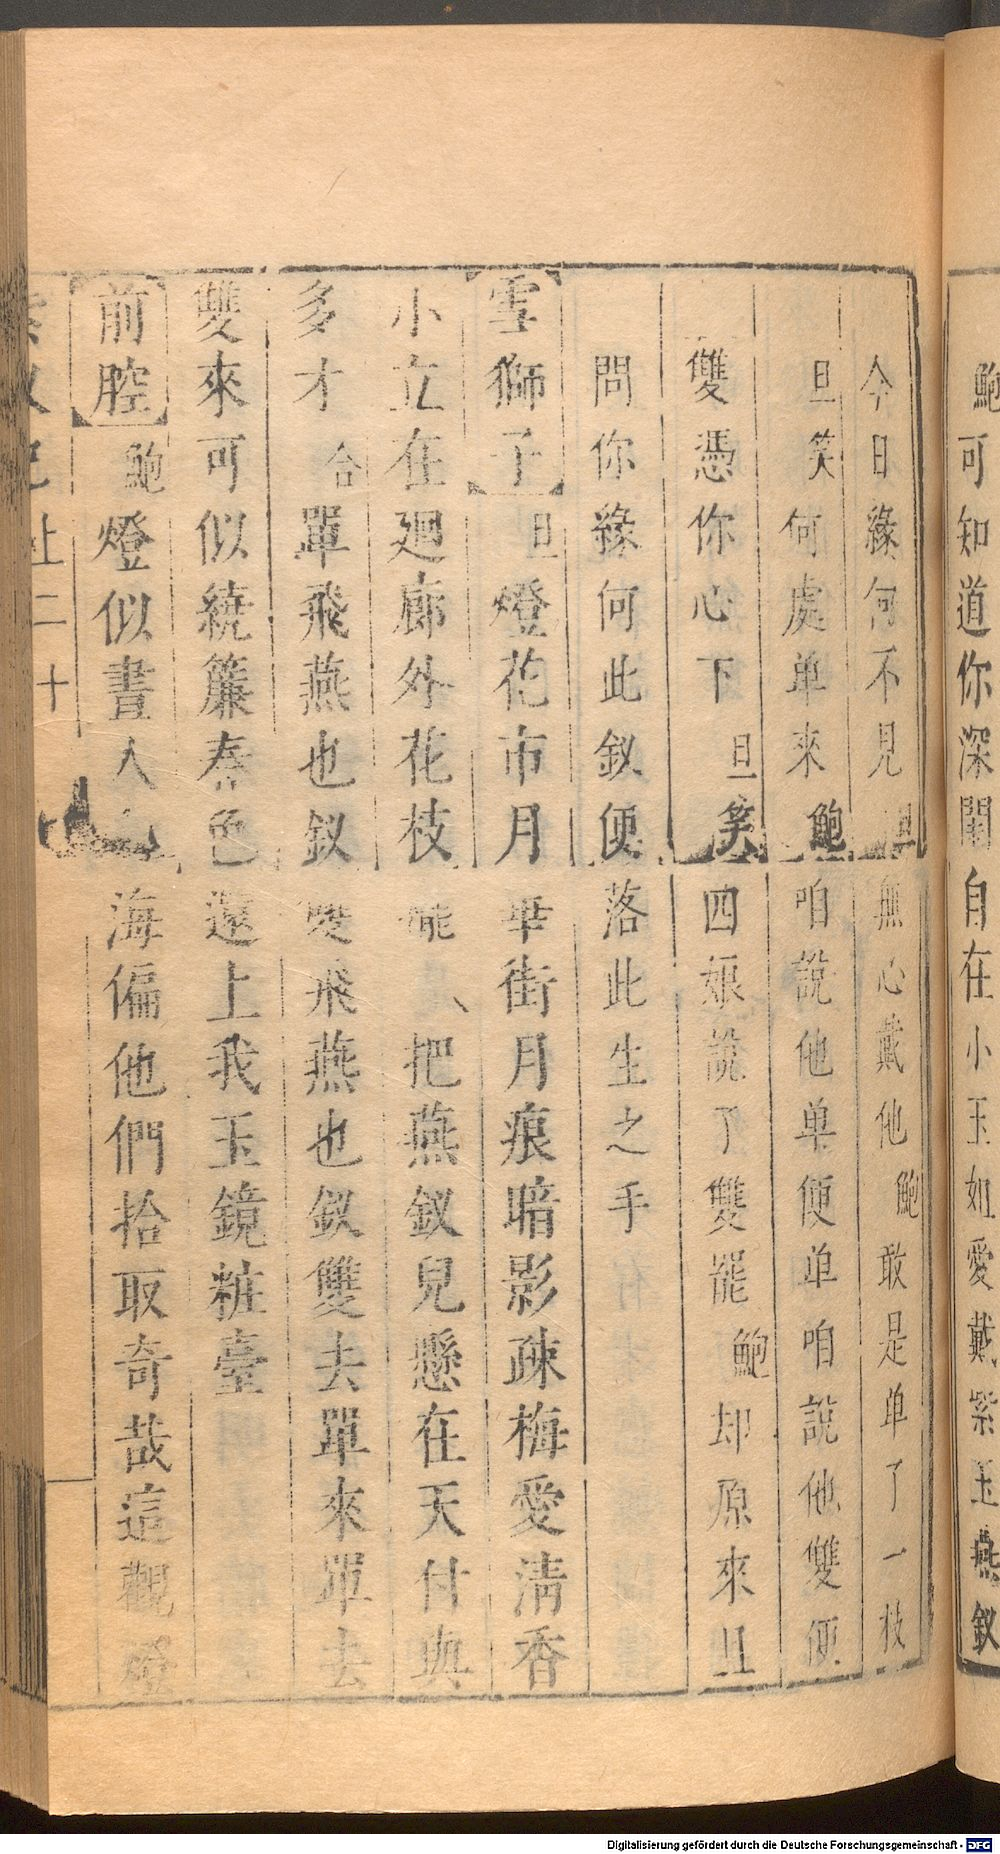 鮑可知道你深閨自在小玉姐愛戴紫玉燕釵
今日緣何不見旦無心戴他鮑敢是单了一枝
旦笑何處单來鮑咱說他单便单咱說他雙便
雙憑你心下旦笑四娘說了雙罷鮑却原來且
問你緣何此釵便落此生之手
雪獅子旦燈花市月華街月痕暗影疎梅愛清香
小立在廻廊外花枝把燕釵兒懸在天付與
多才合單飛燕也釵雙飛燕也釵雙去單來單去
雙來可似繞簾春色還上我玉鏡粧臺
前腔鮑燈似晝人海偏他們拾取奇哉這觀燈
上二十
Digitalisierung gefördert durch die Deutsche Forschungsgemeinschaft - DFG